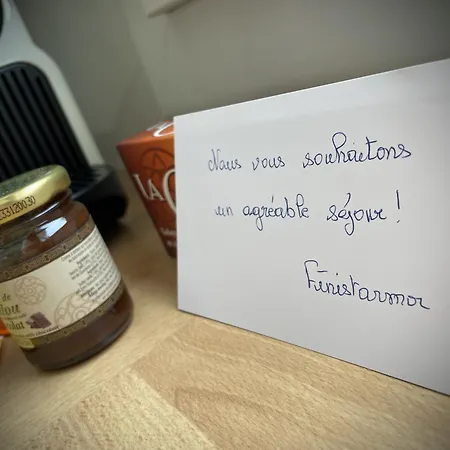 Nous vous souhaitons
un agréable séjour !
Finistarmor
33120030
de
LA